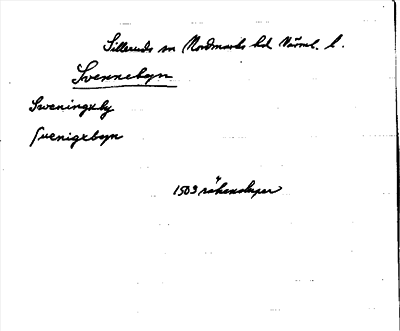 Silleruds sn Nordmarks hd Värml. l.
Svennebyn
Sweningxby
Swenigxbyn
1503 räkenskaper